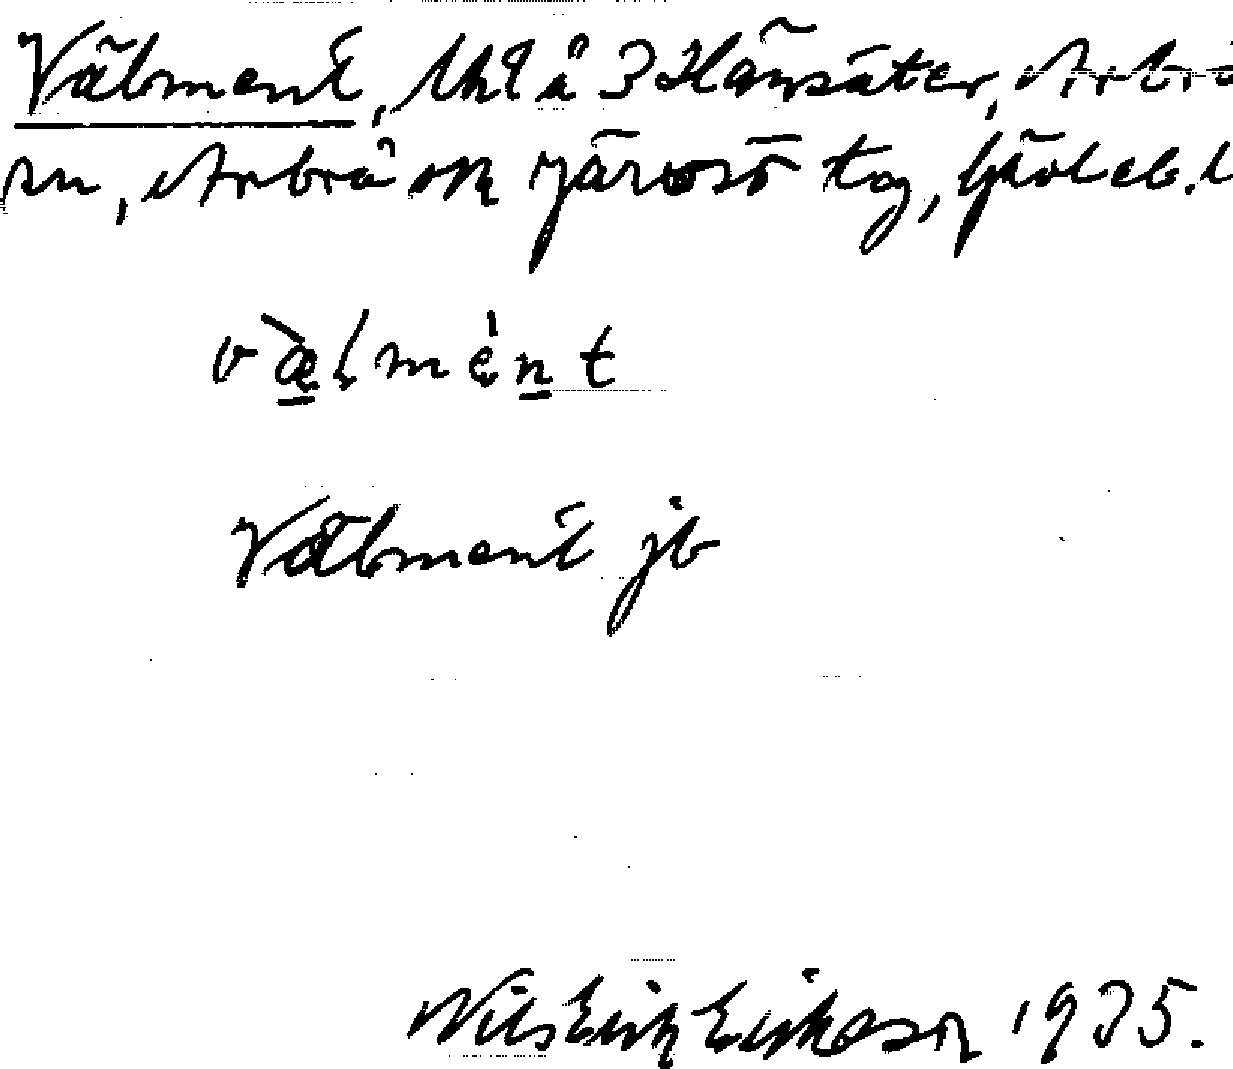 Välment, Uhl å 3 Hänsäter, Arbrå
sn, Arbrå och Järvsö tg, Gävleb. l
v æ l m e n t
Välment jb
Nils Erik Eriksson 1935.